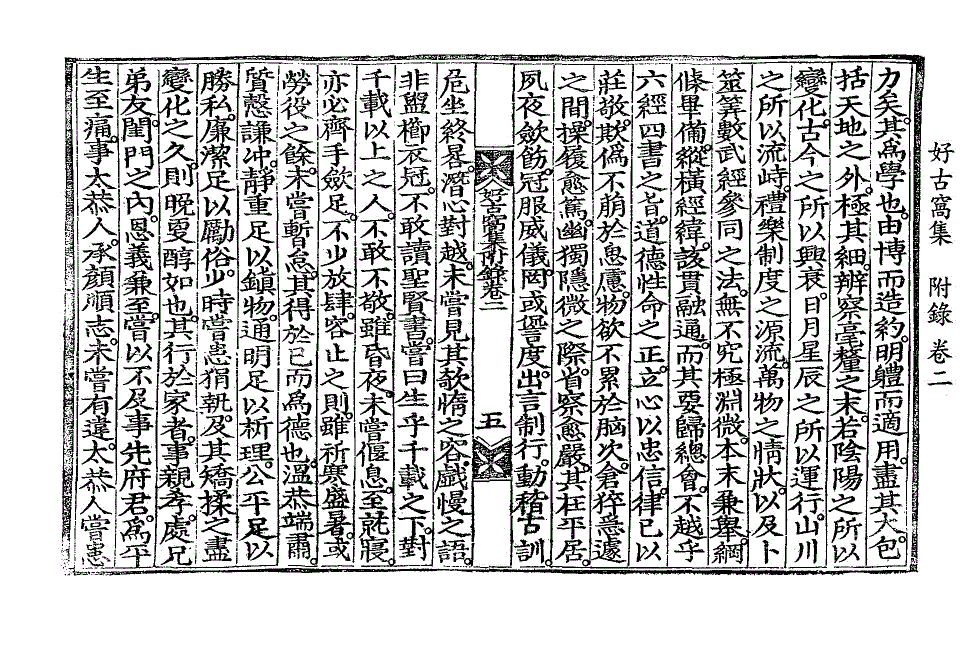 好古窩集 附錄 卷二
力矣。其爲學也。由博而造約。明體而適用。盡其大包
括天地之外。極其細辨察毫釐之末。若陰陽之所以
變化。古今之所以興衰。日月星辰之所以運行。山川
之所以流峙。禮樂制度之源流。萬物之情狀。以及卜
筮筭數武經參同之法。無不究極淵微。本末兼擧。綱
條畢備。縱橫經緯。該貫融通。而其要歸總會。不越乎
六經四書之旨。道德性命之正。立心以忠信。律己以
莊敬。欺僞不萌於思慮。物欲不累於胸次。倉猝急遽
之間。操履愈篤。幽獨隱微之際。省察愈嚴。其在平居。
夙夜斂飭。冠服威儀。罔或諐度。出言制行。動稽古訓。
好古窩集附錄卷二 五
危坐終晷。潛心對越。未嘗見其欹惰之容。戲慢之語。
非盥櫛衣冠。不敢讀聖賢書。嘗曰生乎千載之下。對
千載以上之人。不敢不敬。雖昏夜。未嘗偃息。至就寢
亦必齊手斂足。不少放肆。容止之則。雖祈寒盛暑。或
勞役之餘。未嘗暫怠。其得於己而爲德也。溫恭端肅。
質慤謙冲。靜重足以鎭物。通明足以析理。公平足以
勝私。廉潔足以勵俗。少時嘗患狷執。及其矯揉之盡
變化之久。則晩更醇如也。其行於家者。事親孝。處兄
弟友。閨門之內。恩義兼至。嘗以不及事先府君。爲平
生至痛。事太恭人。承顔順志。未嘗有違。太恭人嘗患